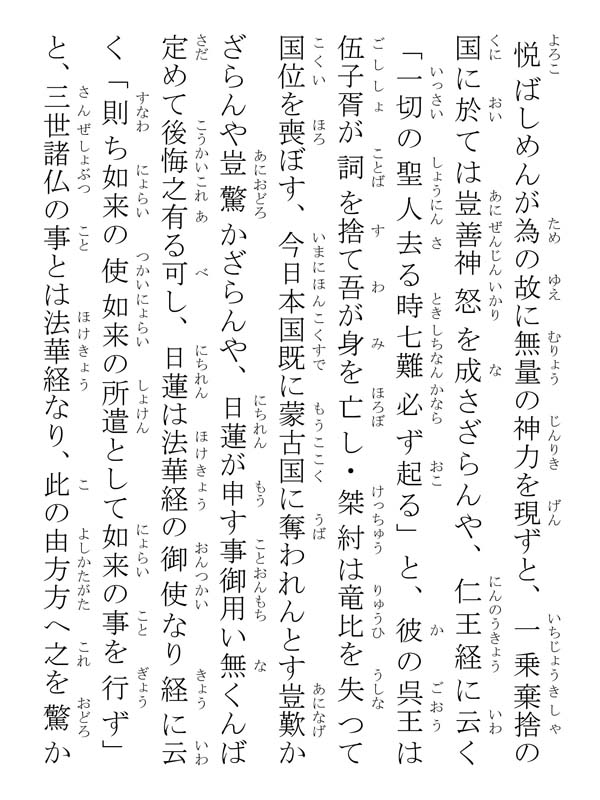 悦ばしめんが為の故に無量の神力を現ずと、一乗棄捨の
国に於ては豈善神怒を成さざらんや、仁王経に云く
「一切の聖人去る時七難必ず起る」と、彼の呉王は
伍子胥が詞を捨て吾が身を亡し・桀紂は竜比を失つて
国位を喪ぼす、今日本国既に蒙古国に奪われんとす豈歎か
ざらんや豈驚かざらんや、日蓮が申す事御用い無くんば
定めて後悔之有る可し、日蓮は法華経の御使なり経に云
く「則ち如来の使如来の所遣として如来の事を行ず」
と、三世諸仏の事とは法華経なり、此の由方方へ之を驚か